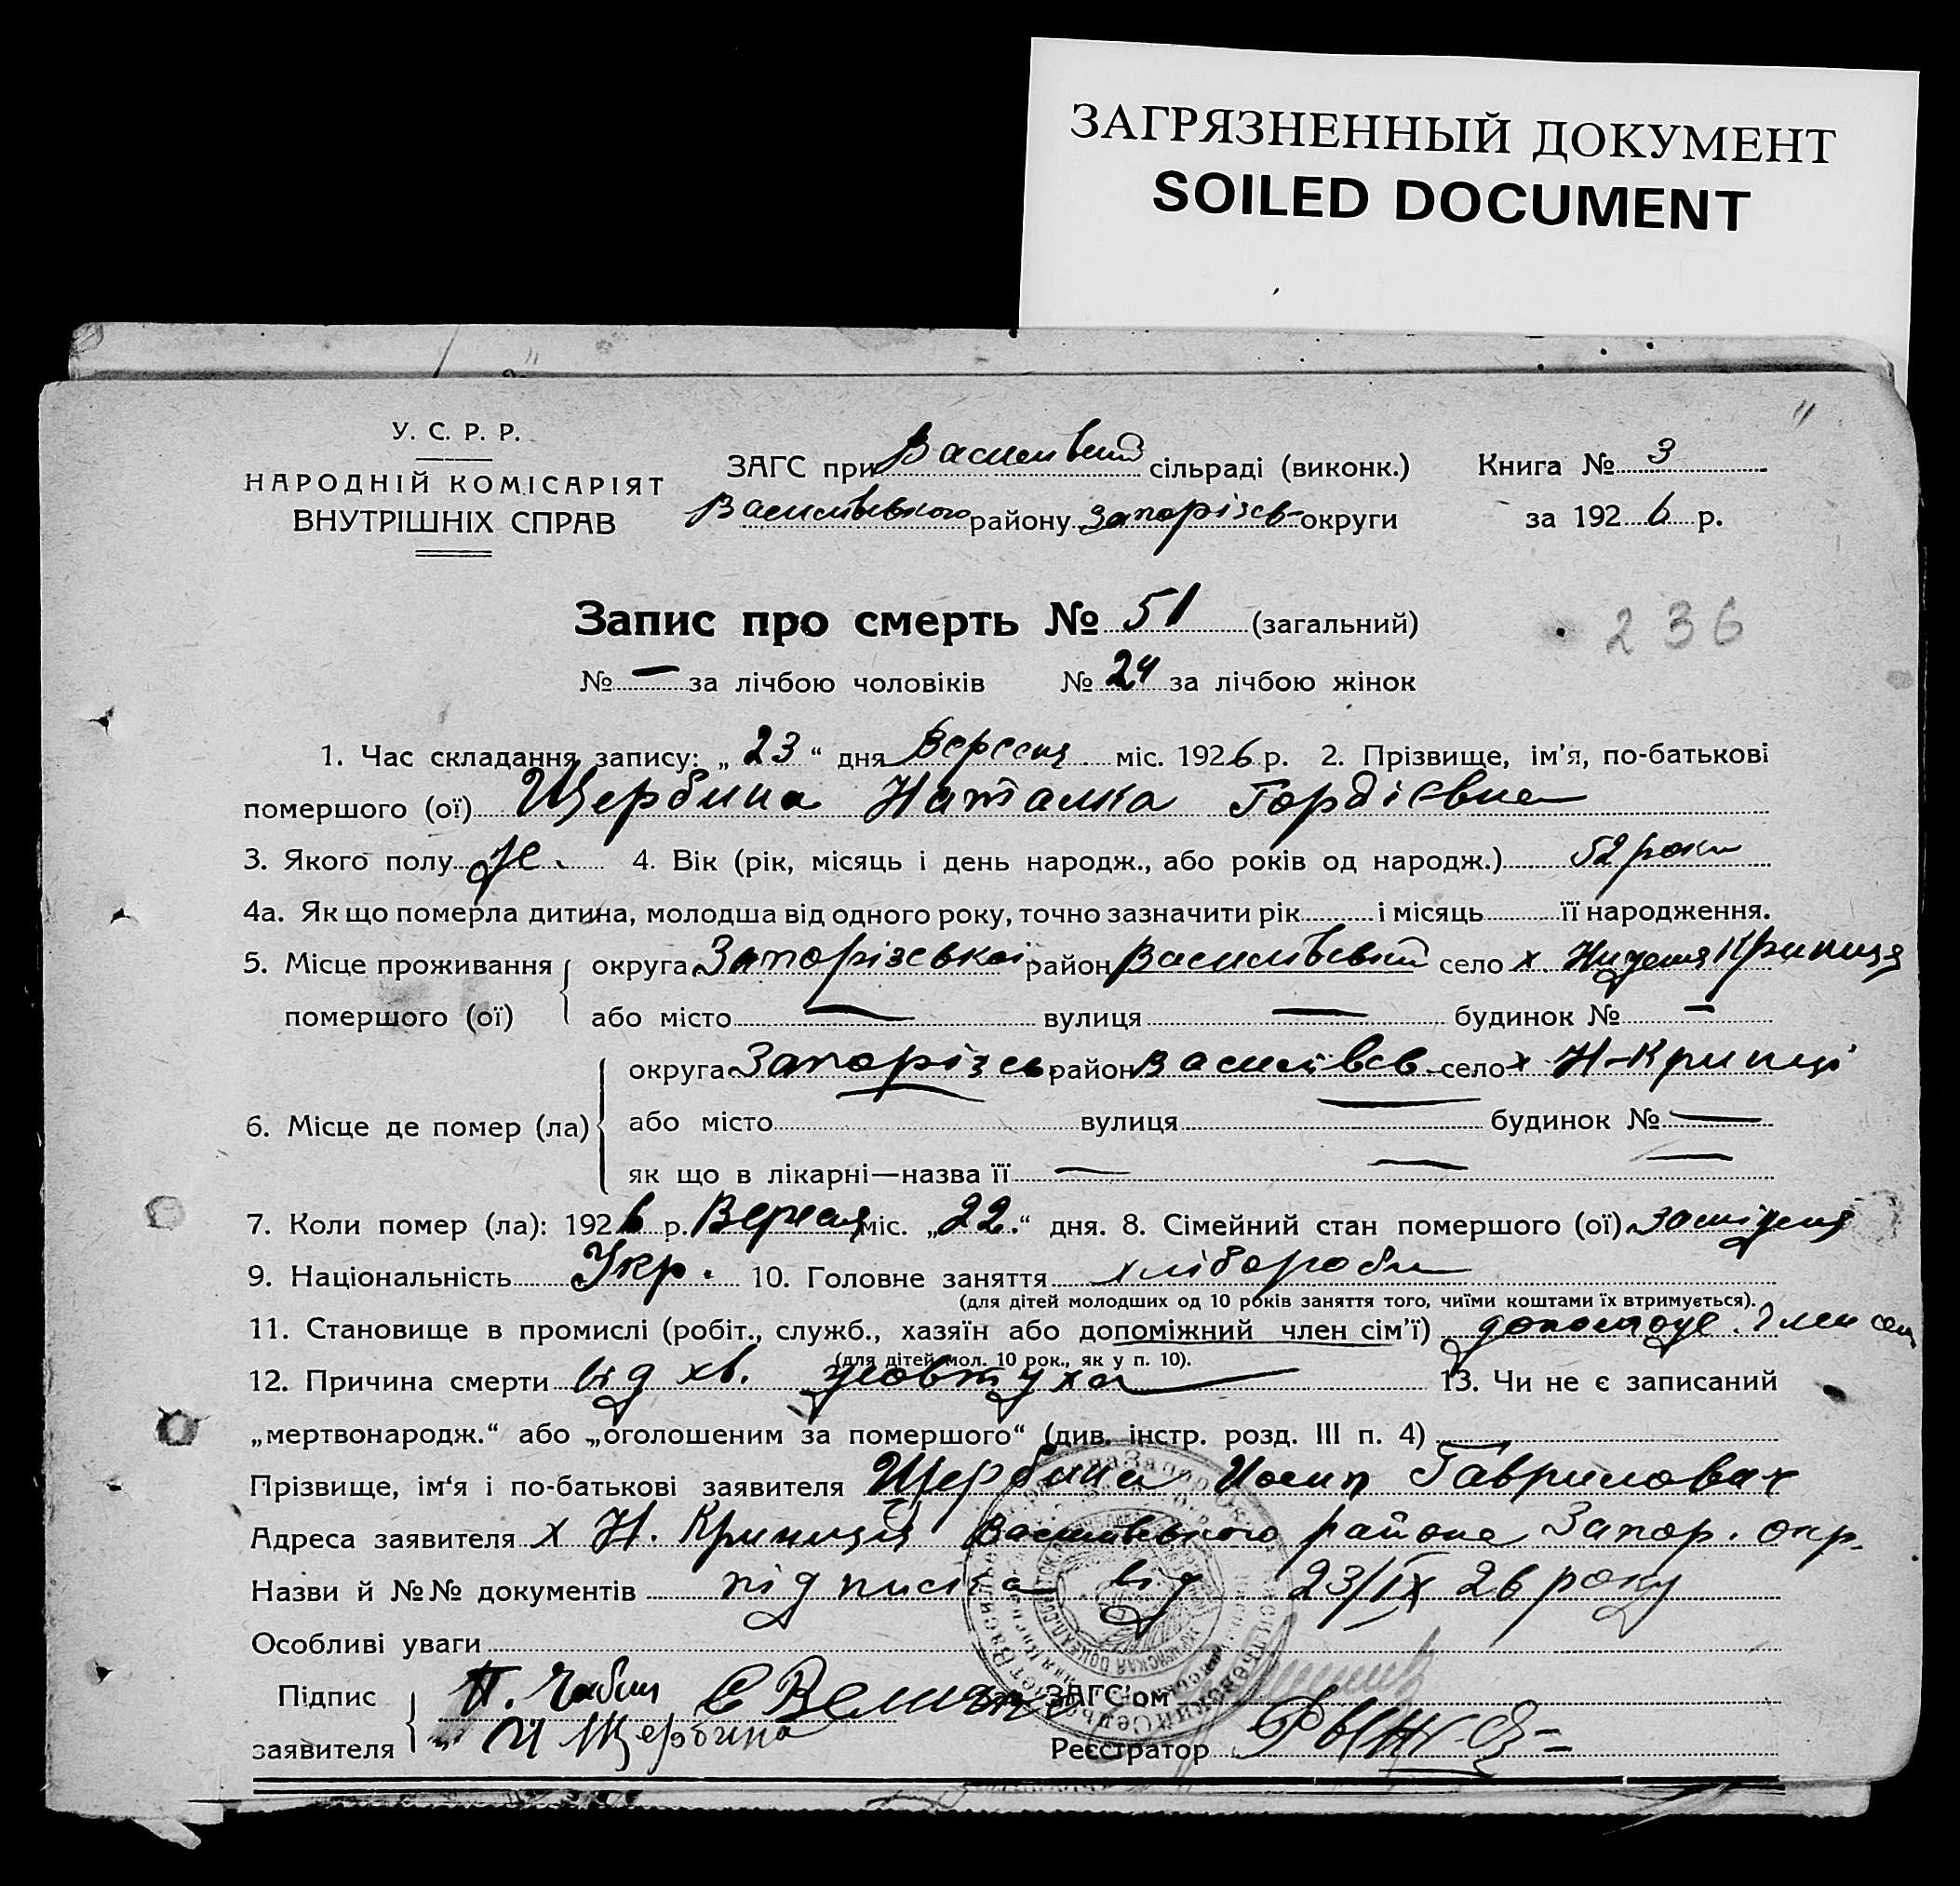 ЗАГРЯЗНЕННЫЙ ДОКУМЕНТ
SOILED DOCUMENT
У. С. Р. Р.
НАРОДНІЙ КОМІСАРІЯТ
ВНУТРІШНІХ СПРАВ
ЗАГС при Василівській сільраді (виконк.)
Василівського району Запорізьк округи
Книга № 3
за 1926 р.
Запис про смерть № 51 (загальний)
236
№ — за лічбою чоловіків № 24 за лічбою жінок
1. Час складання запису: „23“ дня Вересня міс. 1926 р. 2. Прізвище, ім’я, по-батькові
помершого (ої) Щербина Наталка Гордієвна
3. Якого полу Ж. 4. Вік (рік, місяць і день народж., або років од народж.) 52 роки
4а. Як що померла дитина, молодша від одного року, точно зазначити рік і місяць її народження.
5. Місце проживання помершого (ої) округа Запорізької район Василівський село х. Криниця
або місто — вулиця — будинок № —
6. Місце де помер (ла) округа Запорізсь район Василівсь село х Н-Криниці
або місто — вулиця — будинок № —
як що в лікарні—назва її — — —
7. Коли помер (ла): 1926 р. Вересня міс. „22.“ дня. 8. Сімейний стан помершого (ої) заміжня
9. Національність Укр. 10. Головне заняття хлібороби
(для дітей молодших од 10 років заняття того, чиїми коштами їх втримується).
11. Становище в промислі (робіт., служб., хазяїн або допоміжний член сім’ї) член сем
(для дітей мол. 10 рок., як у п. 10).
12. Причина смерти від хв. жовтуха 13. Чи не є записаний
„мертвонародж.“ або „оголошеним за помершого“ (див. інстр. розд. III п. 4)
Прізвище, ім‘я і по-батькові заявителя Щербина Йосип Гаврилович
Адреса заявителя х Н. Криниця Василівського района Запор. окр.
Назви й №№ документів підписка від 23/IX 26 року
Особливі уваги
Підпис заявителя
И Щербина
ЗАГС’ом
Реєстратор